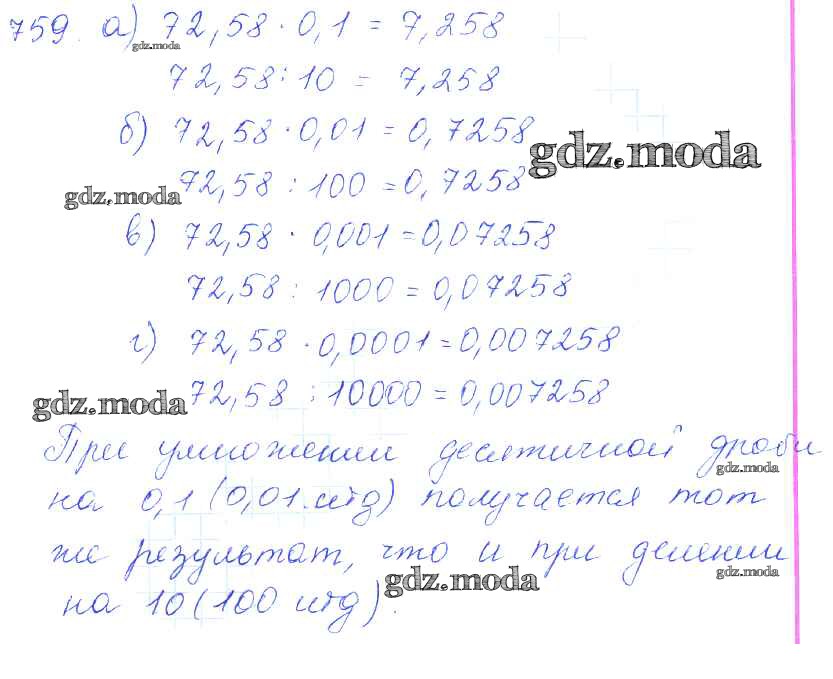 759. а) 72,58 · 0,1 = 7,258
gdz.moda
72,58 : 10 = 7,258
б) 72,58 · 0,01 = 0,7258
gdz.moda
72,58 : 100 = 0,7258
gdz.moda
в) 72,58 · 0,001 = 0,07258
72,58 : 1000 = 0,07258
г) 72,58 · 0,0001 = 0,007258
72,58 : 10000 = 0,007258
gdz.moda
При умножении десятичной дроби
gdz.moda
на 0,1 (0,01.итд) получается тот
же результат, что и при делении
gdz.moda
gdz.moda
на 10 (100 итд).